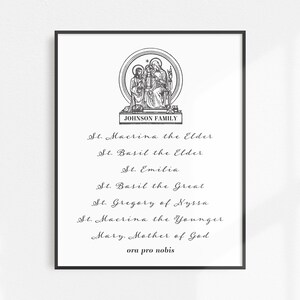 JOHNSON FAMILY
St. Macrina the Elder
St. Basil the Elder
St. Emilia
St. Basil the Great
St. Gregory of Nyssa
St. Macrina the Younger
Mary, Mother of God
ora pro nobis